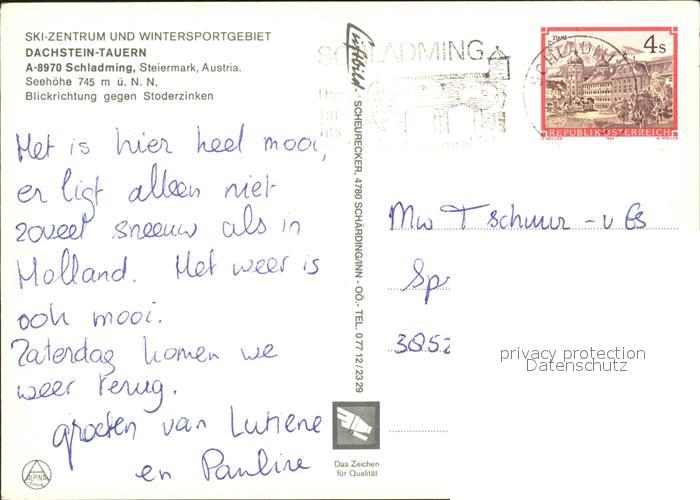 SKI-ZENTRUM UND WINTERSPORTGEBIET
DACHSTEIN-TAUERN
A-8970 Schladming, Steiermark, Austria.
Seehöhe 745 m ü. N. N.
Blickrichtung gegen Stoderzinken
Het is hier heel mooi,
er ligt alleen niet
zoveel sneeuw als in
Holland. Het weer is
ook mooi.
Zaterdag komen we
weer terug.
groeten van Lutiene
en Pauline
ALPINA
Luftbild
SCHEURECKER, 4780 SCHÄRDING/INN - OÖ.- TEL. 0 77 12 / 23 29
Das Zeichen
für Qualität
SCHLADMING
SCHLADMING
STAMS
4 S
REPUBLIK ÖSTERREICH
Mw Tschuur - v Es
Sp
3852
privacy protection
Datenschutz